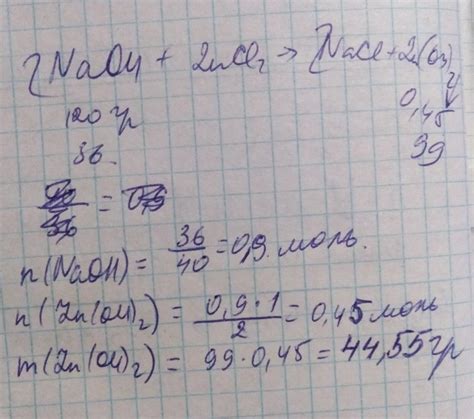 2NaOH + ZnCl₂ → 2NaCl + Zn(OH)₂↓
120 гр
0,45
36
99
n(NaOH) = 36/40 = 0,9 моль.
n(Zn(OH)₂) = 0,9·1/2 = 0,45 моль
m(Zn(OH)₂) = 99·0,45 = 44,55 гр